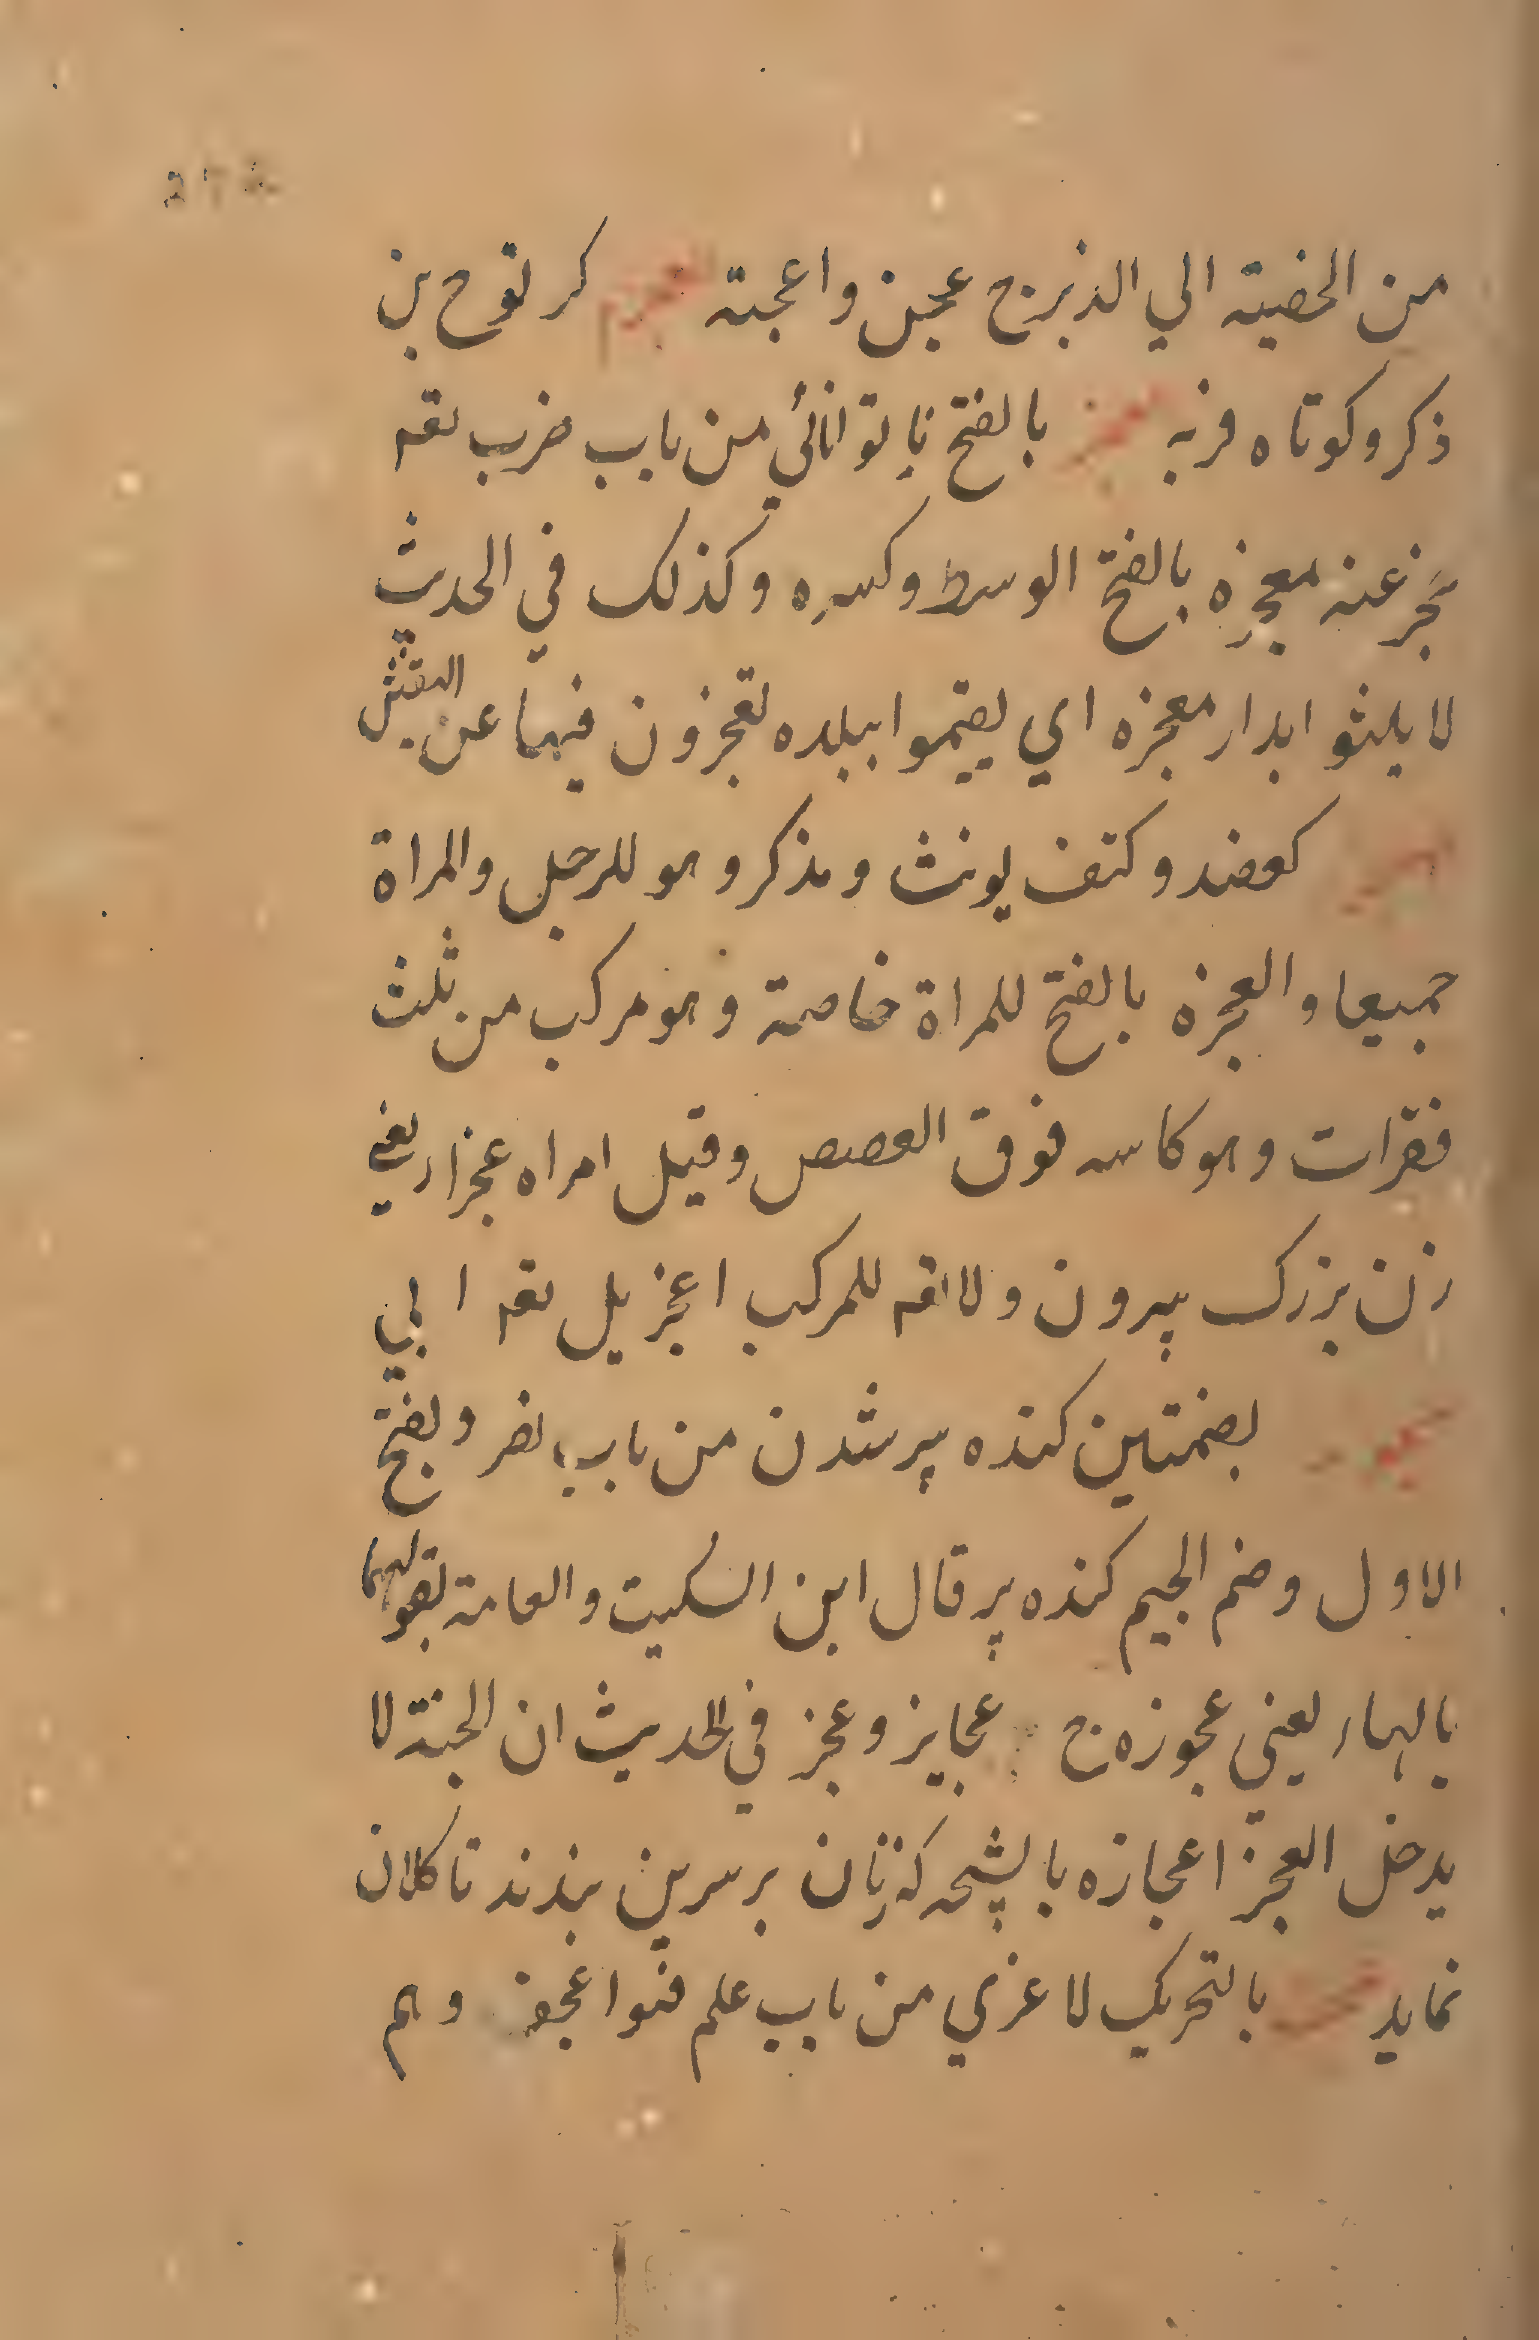 من الخصية الي الدبر ج عجن و اعجنة كر توح بن
ذكر و كوتاه فربه بالفتح ناتوانائي من باب ضرب يقم
عجز عنه معجزه بالفتح الوسط و كسره و كذلك في الحديث
لا يلبثو ابدار معجزه اي يقيموا ببلده تعجزون فيها عن التعيش
كعضد و كتف يونث و مذكر و هو للرجل و المراة
جميعا و العجزه بالفتح للمراة خاصة و هو مركب من ثلث
فقرات و هو كاسه فوق العصص و قيل امراه عجزاء يعني
زن بزرك سرون و لا يقم للمركب اعجز بل يقم الي
بضمتين كنده پير شدن من باب نصر و بفتح
الاول و ضم الجيم كنده پير قال ابن السكيت و العامة تقولها
بالهاء يعني عجوزه ج عجايز و عجز في الحديث ان الجنة لا
يدخل العجز اعجازه بالشحه كه زنان بر سرين بندند تا كلان
نمايد بالتحريك لاغري من باب علم فهو اعجف و هم